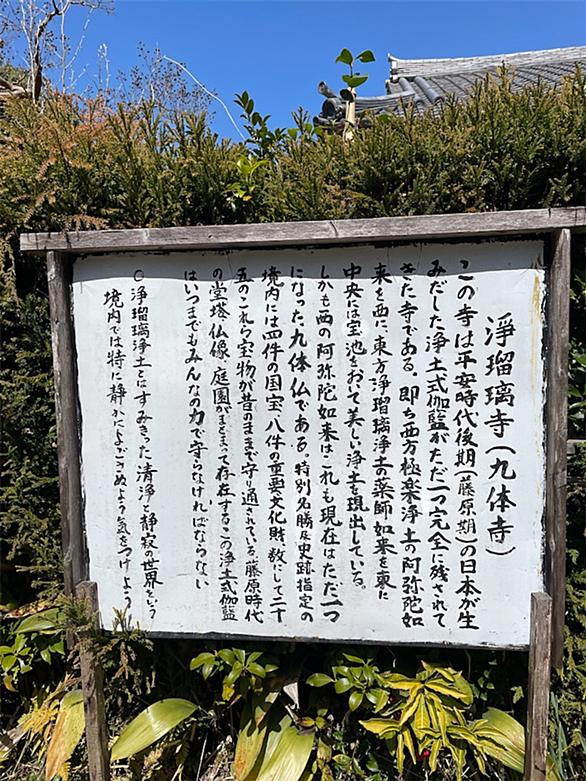 浄瑠璃寺（九体寺）
この寺は平安時代後期（藤原期）の日本が生
みだした浄土式伽藍がただ一つ完全に残されて
きた寺である。即ち西方極楽浄土の阿弥陀如
来を西に、東方浄瑠璃浄土の薬師如来を東に
中央は宝池をおいて美しい浄土を現出している。
しかも西の阿弥陀如来はこれも現在はただ一つ
になった九体仏である。特別名勝及史跡指定の
境内には四件の国宝、八件の重要文化財、数にして二十
五のこれら宝物が昔のままで守り通されている。藤原時代
の堂塔、仏像、庭園がまとまって存在するこの浄土式伽藍
はいつまでもみんなの力で守らなければならない
○浄瑠璃浄土とはすみきった清浄と静寂の世界をいう
境内では特に静かによごさぬよう気をつけよう